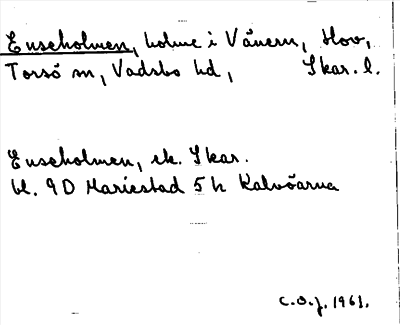 Enseholmen, holme i Vänern, Hov,
Torsö sn, Vadsbo hd, Skar. l.
Enseholmen, ek. Skar.
bl. 9D Mariestad 5h Kalvöarna
C.O.J. 1961.